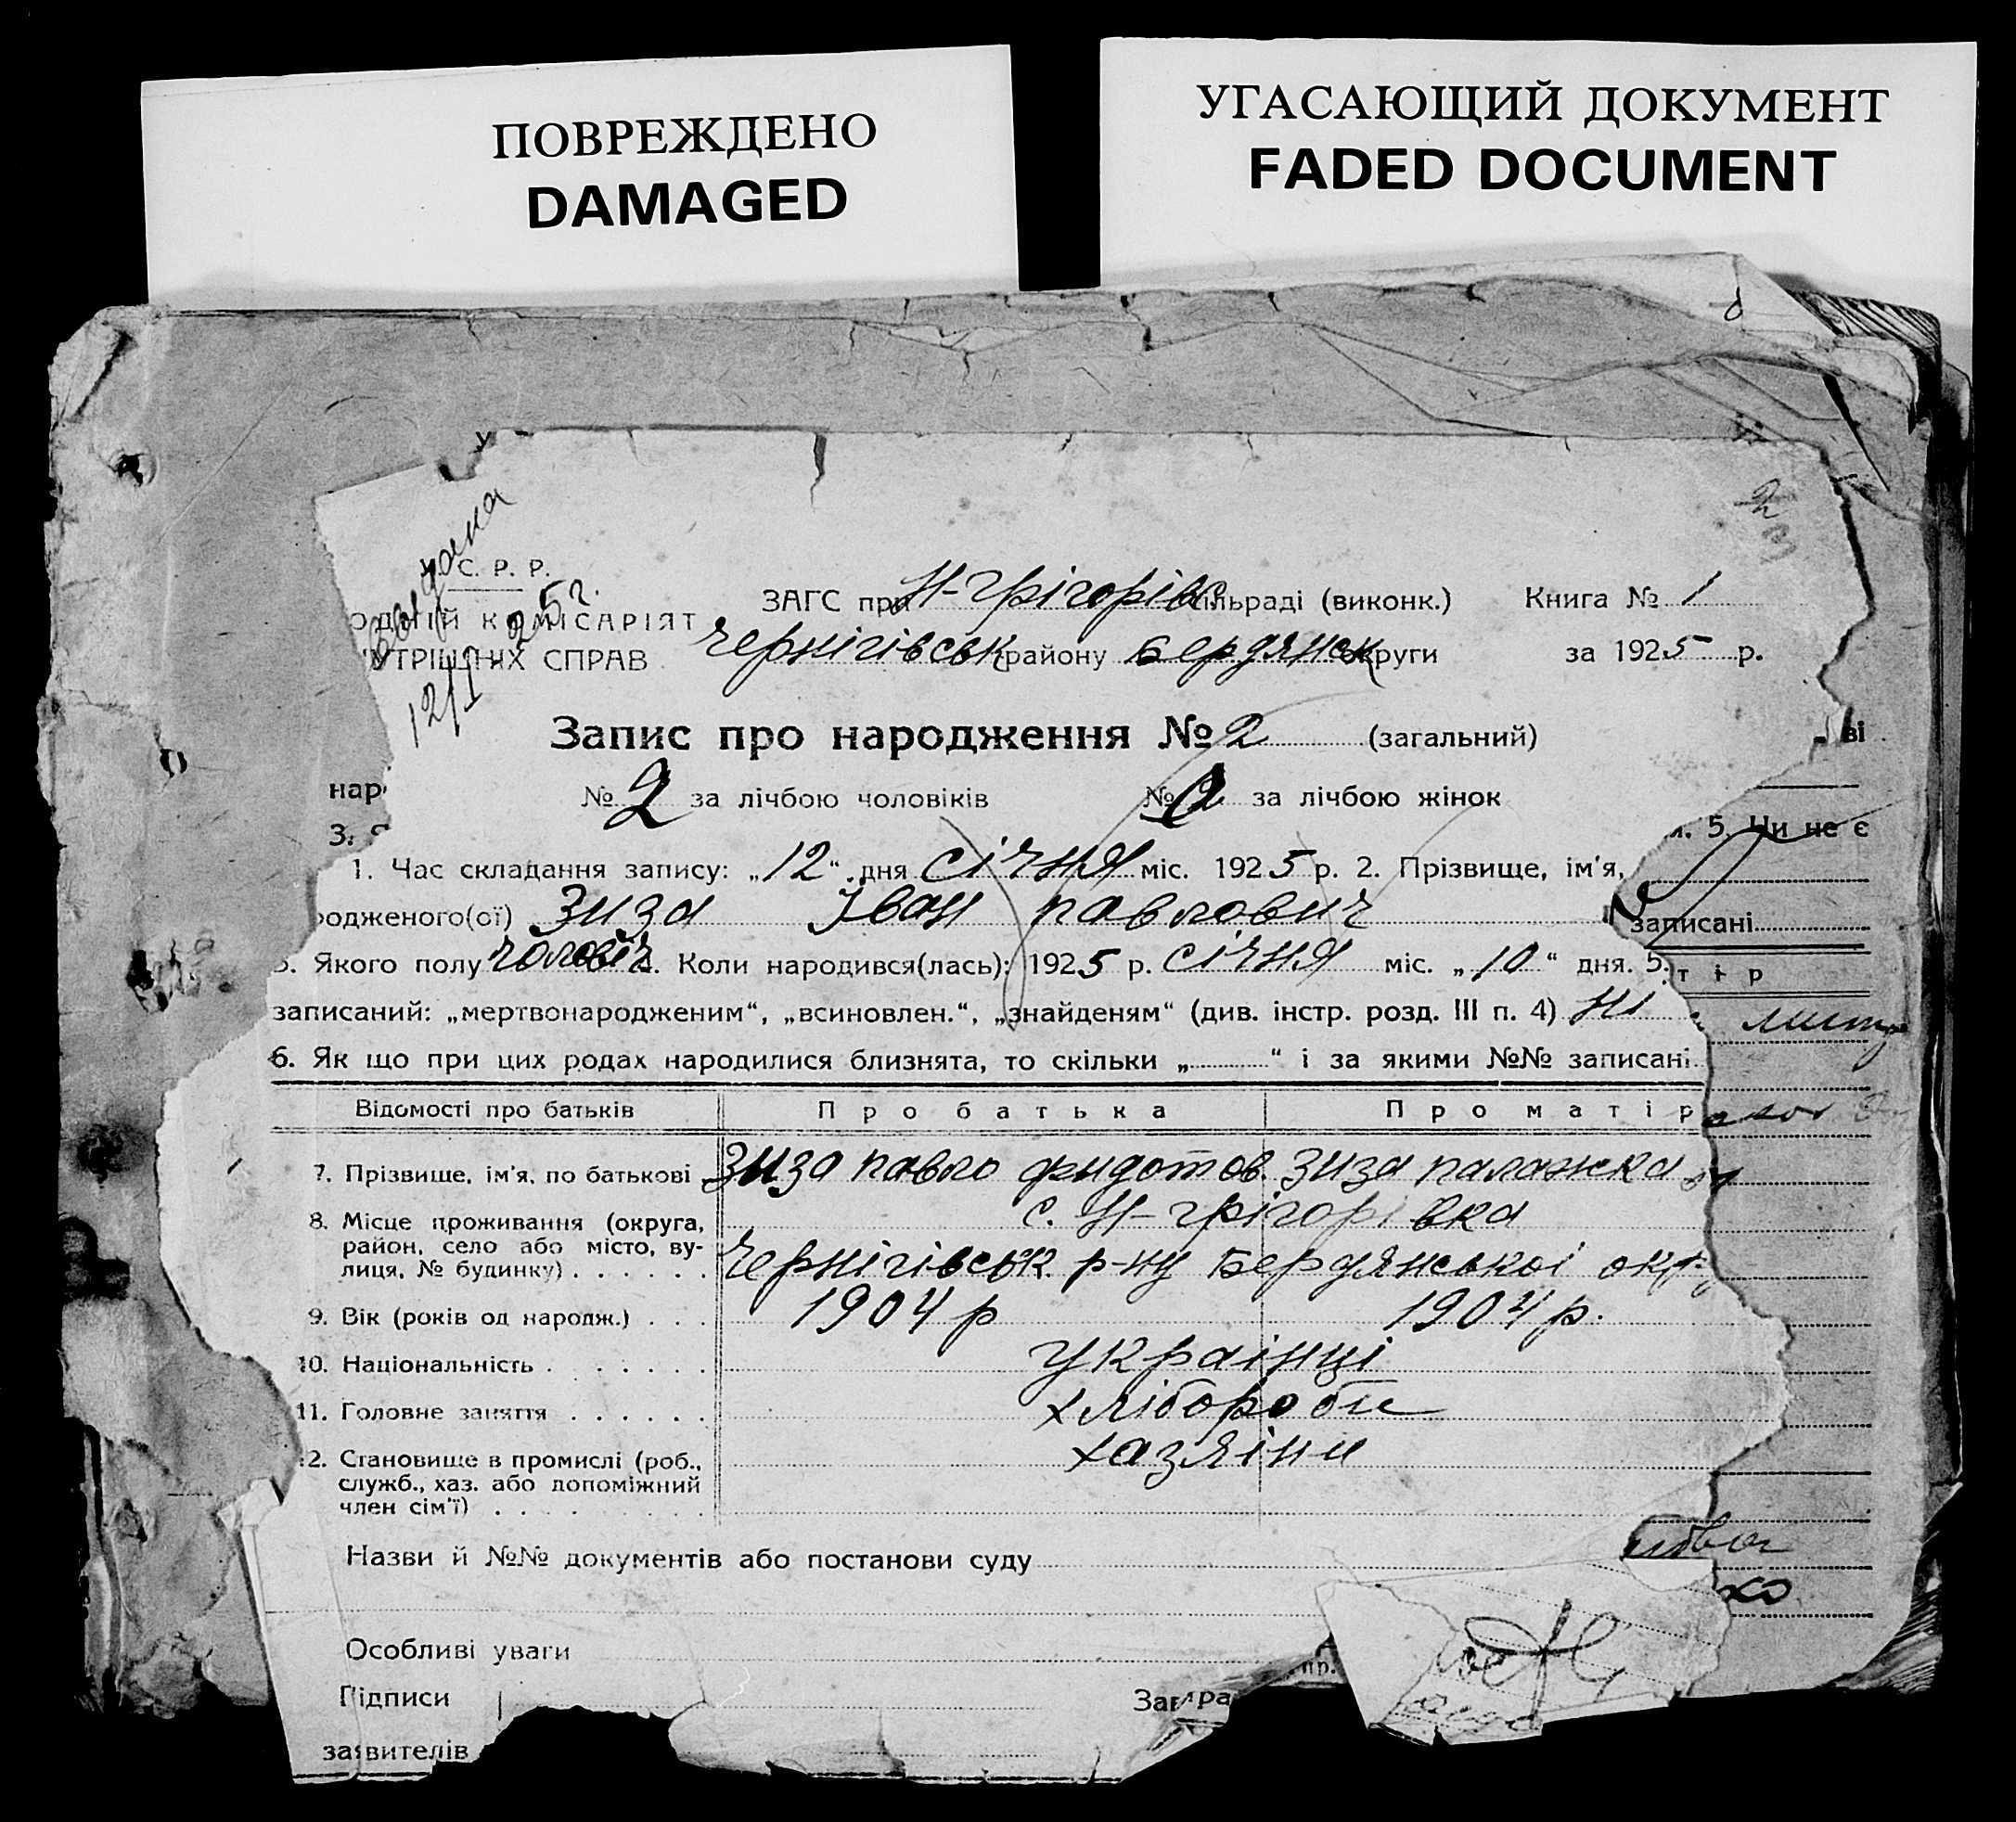 ПОВРЕЖДЕНО
DAMAGED
УГАСАЮЩИЙ ДОКУМЕНТ
FADED DOCUMENT
С. Р. Р.
ОДНІЙ КОМІСАРІЯТ
УТРІШНІХ СПРАВ
12/I 25 г.
ЗАГС при Н-Грігорівс сільраді (виконк.) Книга № 1
Чернігівськ району Бердянськ округи за 1925 р.
Запис про народження № 2 (загальний)
№ 2 за лічбою чоловіків № за лічбою жінок
1. Час складання запису: „12“ дня січня міс. 1925 р. 2. Прізвище, ім'я,
одженого(ої) Зиза Іван Павлович
3. Якого полу чоловіч. 4. Коли народився(лась): 1925 р. січня міс. „10“ дня. 5.
записаний: „мертвонародженим“, „всиновлен.“, „знайденям“ (див. інстр. розд. III п. 4) Ні
6. Як що при цих родах народилися близнята, то скільки „ “ і за якими №№ записані
Відомості про батьків Про батька Про матір
7. Прізвище, ім'я, по батькові Зиза Павло Фидотов. Зиза Палажка
8. Місце проживання (округа, район, село або місто, ву-
лиця, № будинку) с. Н-Грігорівка
Чернігівськ р-ну Бердянської окр.
9. Вік (років од народж.) 1904 р 1904 р.
10. Національність Українці
11. Головне заняття Хлібороби
12. Становище в промислі (роб.,
служб., хаз. або допоміжний
член сім'ї) Хазяіни
Назви й №№ документів або постанови суду
Особливі уваги
Підписи
заявителів
нар
5. Чи не є
записані
тір